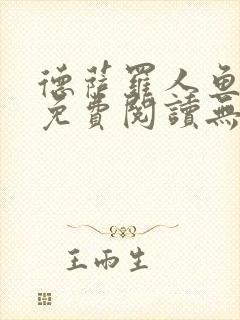 德薩羅人魚
免費閱讀無
王雨生